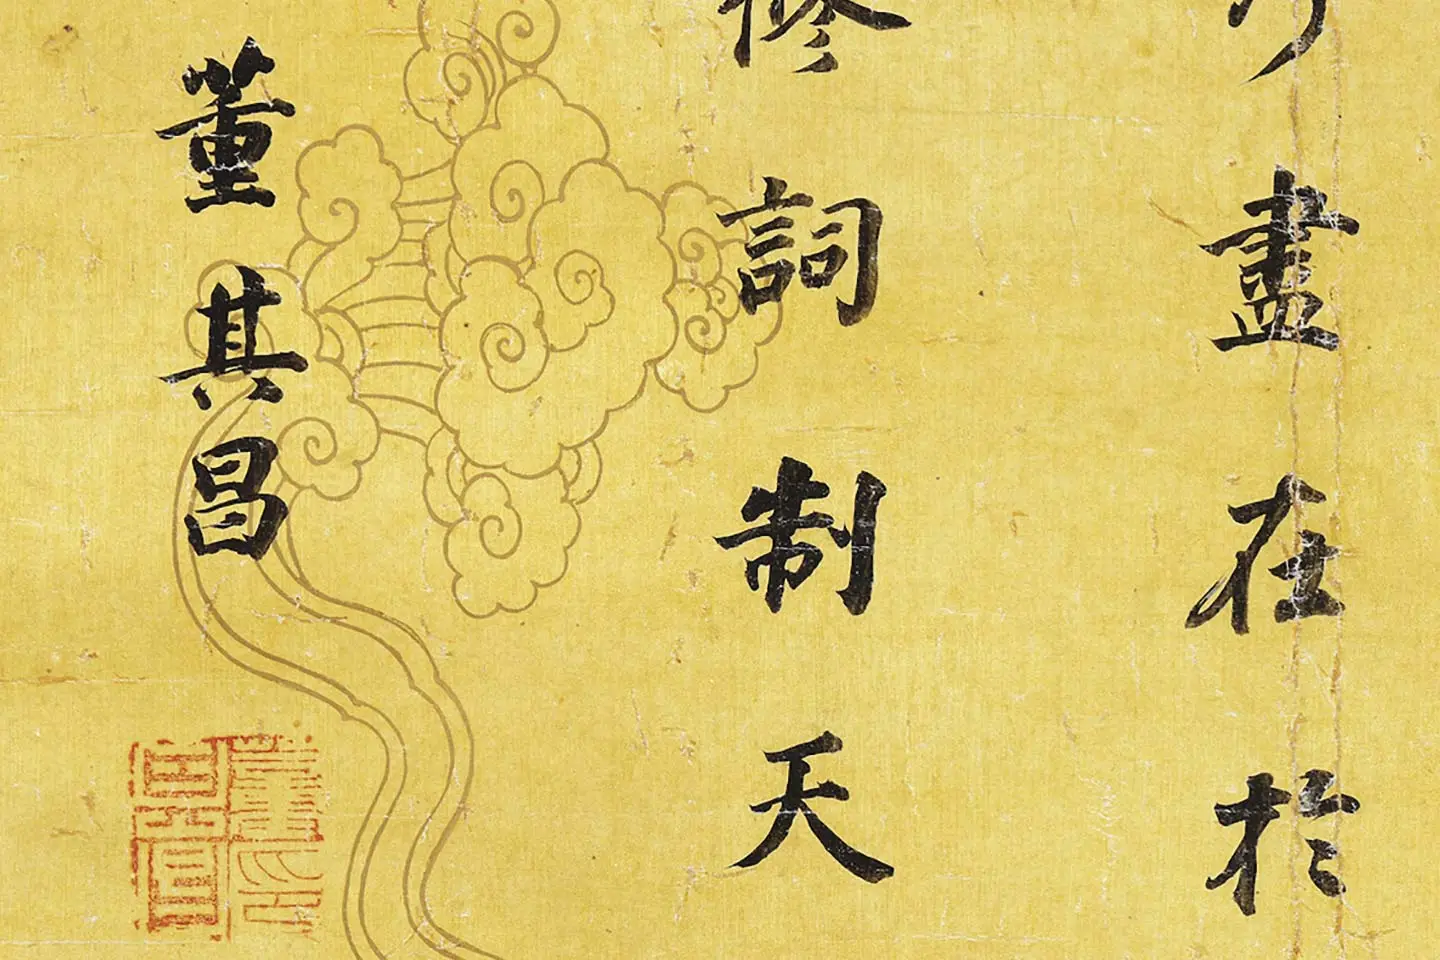 盡在於
修詞制天
董其昌